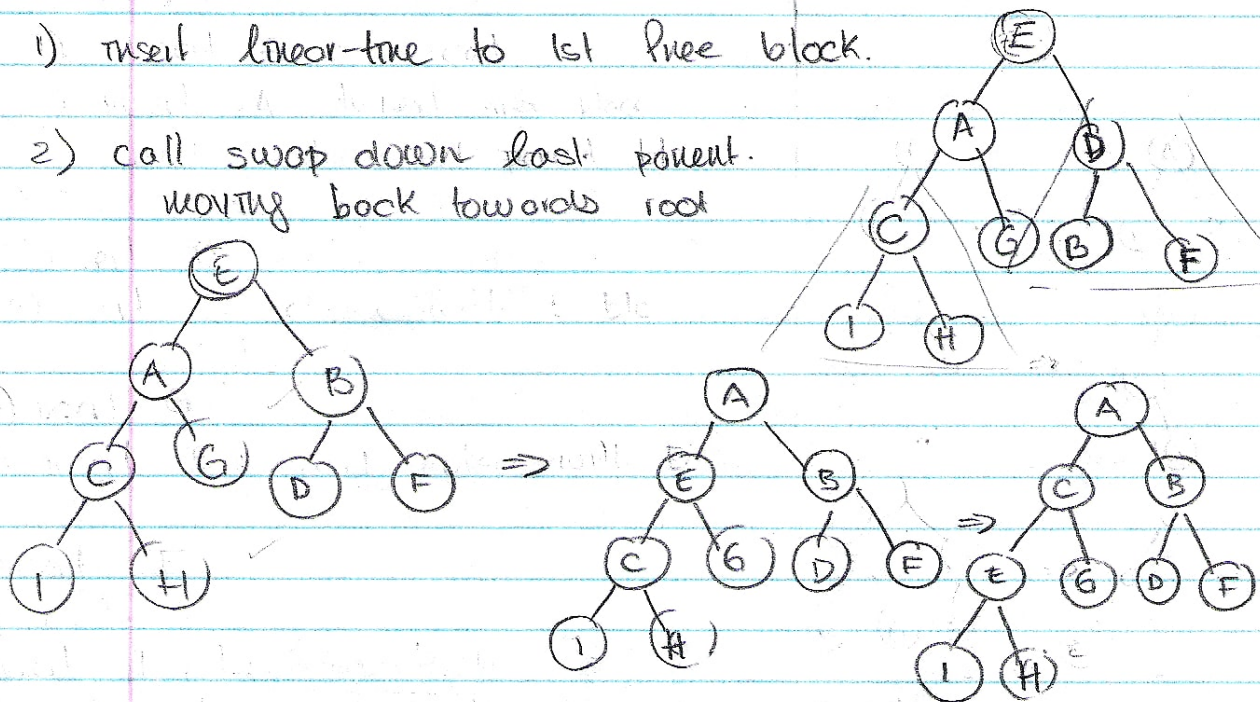 1) insert linear-time to 1st free block.
2) call swap down last parent.
moving back towards root
E
A D
C G B F
I H
E
A B
C G D F
I H
⇒
A
E B
C G D F
I H
⇒
A
C B
E G D F
I H